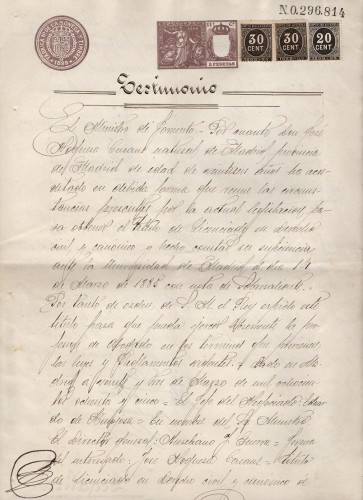 N.0.296.814
1898
2 PESETAS
30 CENT
30 CENT
20 CENT
Testimonio
El Ministro de Fomento = Por cuanto don José
natural de Madrid provincia
de Madrid de edad de veintitres años ha acre-
ditado en debida forma que reune las circuns-
tancias prescritas por la actual legislacion pa-
ra obtener el título de Licenciado en derecho
civil y canónico y hecho constar su suficiencia
ante la Universidad de Madrid el dia 14
de Marzo de 1885 con nota de
Por tanto de orden de S. M. el Rey expido este
título para que pueda ejercer libremente la pro-
fesion de Abogado en los términos que previenen
las leyes y Reglamentos vigentes. Dado en Ma-
drid a de Marzo de mil ochocien-
tos ochenta y cinco = El Jefe del Negociado: Eduar-
do de = En nombre del Sr. Ministro
El director General: =
del interesado: José = Título
de Licenciado en derecho civil y canónico á